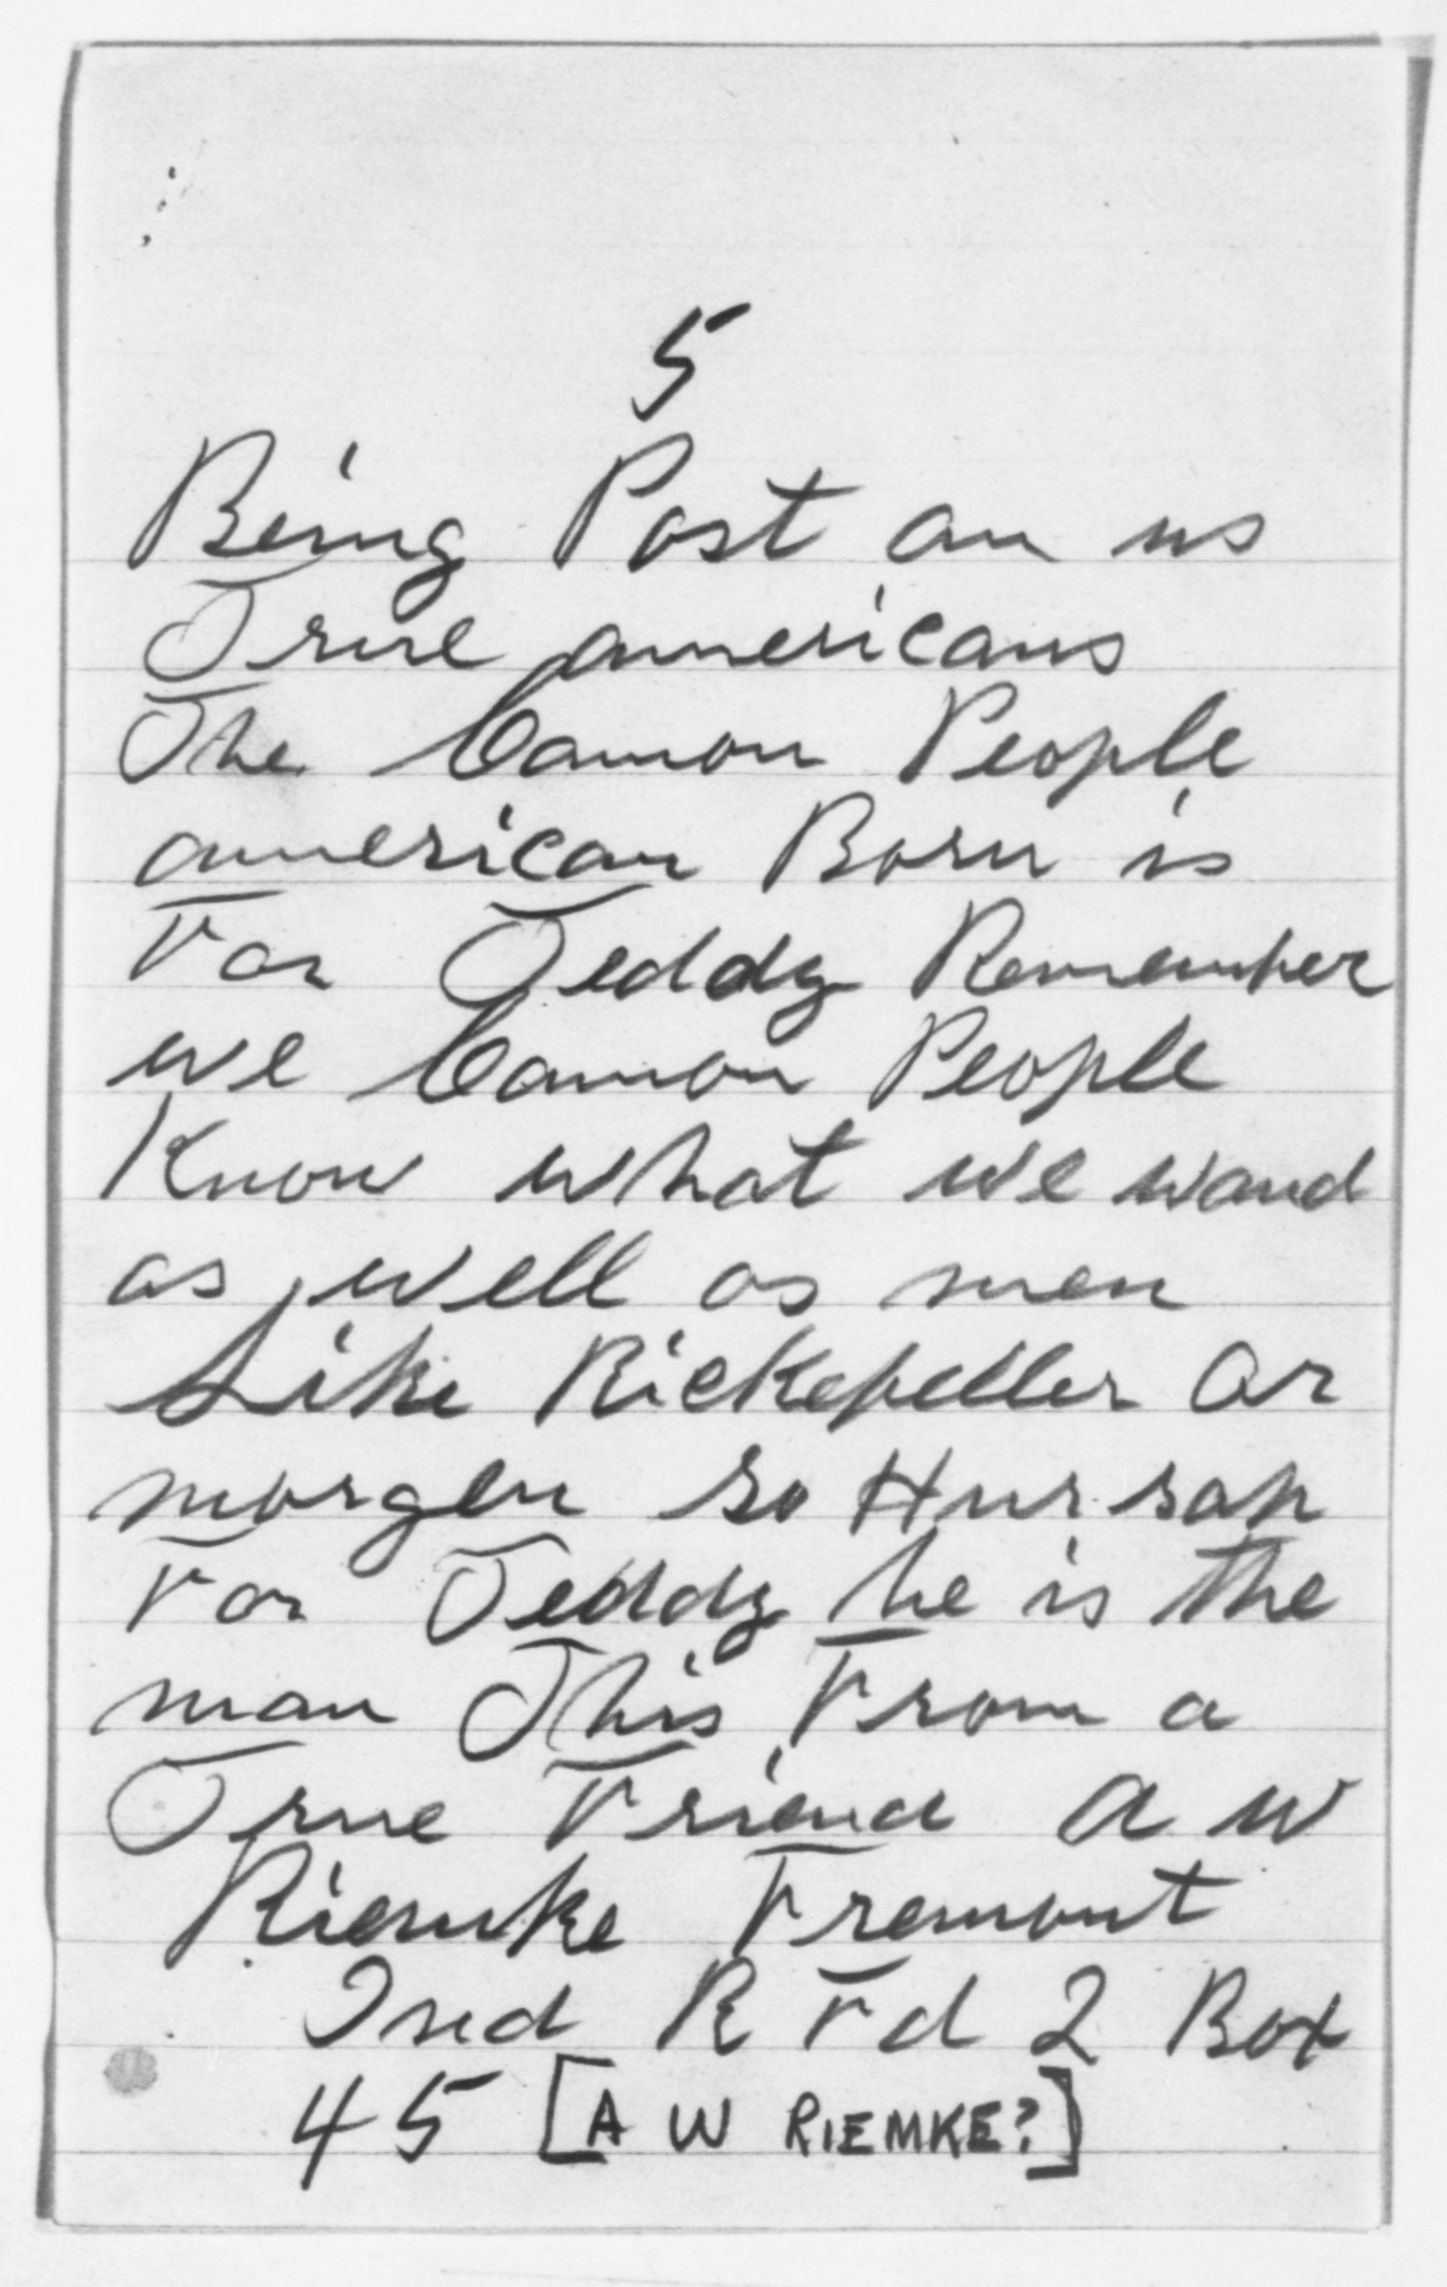 5
Being Post on us
True americans
The Comon People
american Born is
For Teddy Remember
we Comon People
Know what we wand
as well as men
Like Rickefeller Or
morgen so Hurrah
For Teddy he is the
man This From a
True Friend A W
Riemke Fremont
Ind R Fd 2 Box
45 [A W RIEMKE?]